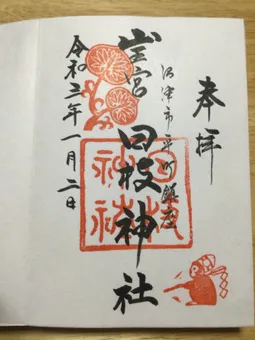 奉拝
沼津市平町鎮座
山王宮 日枝神社
令和三年一月二日
日枝
神社